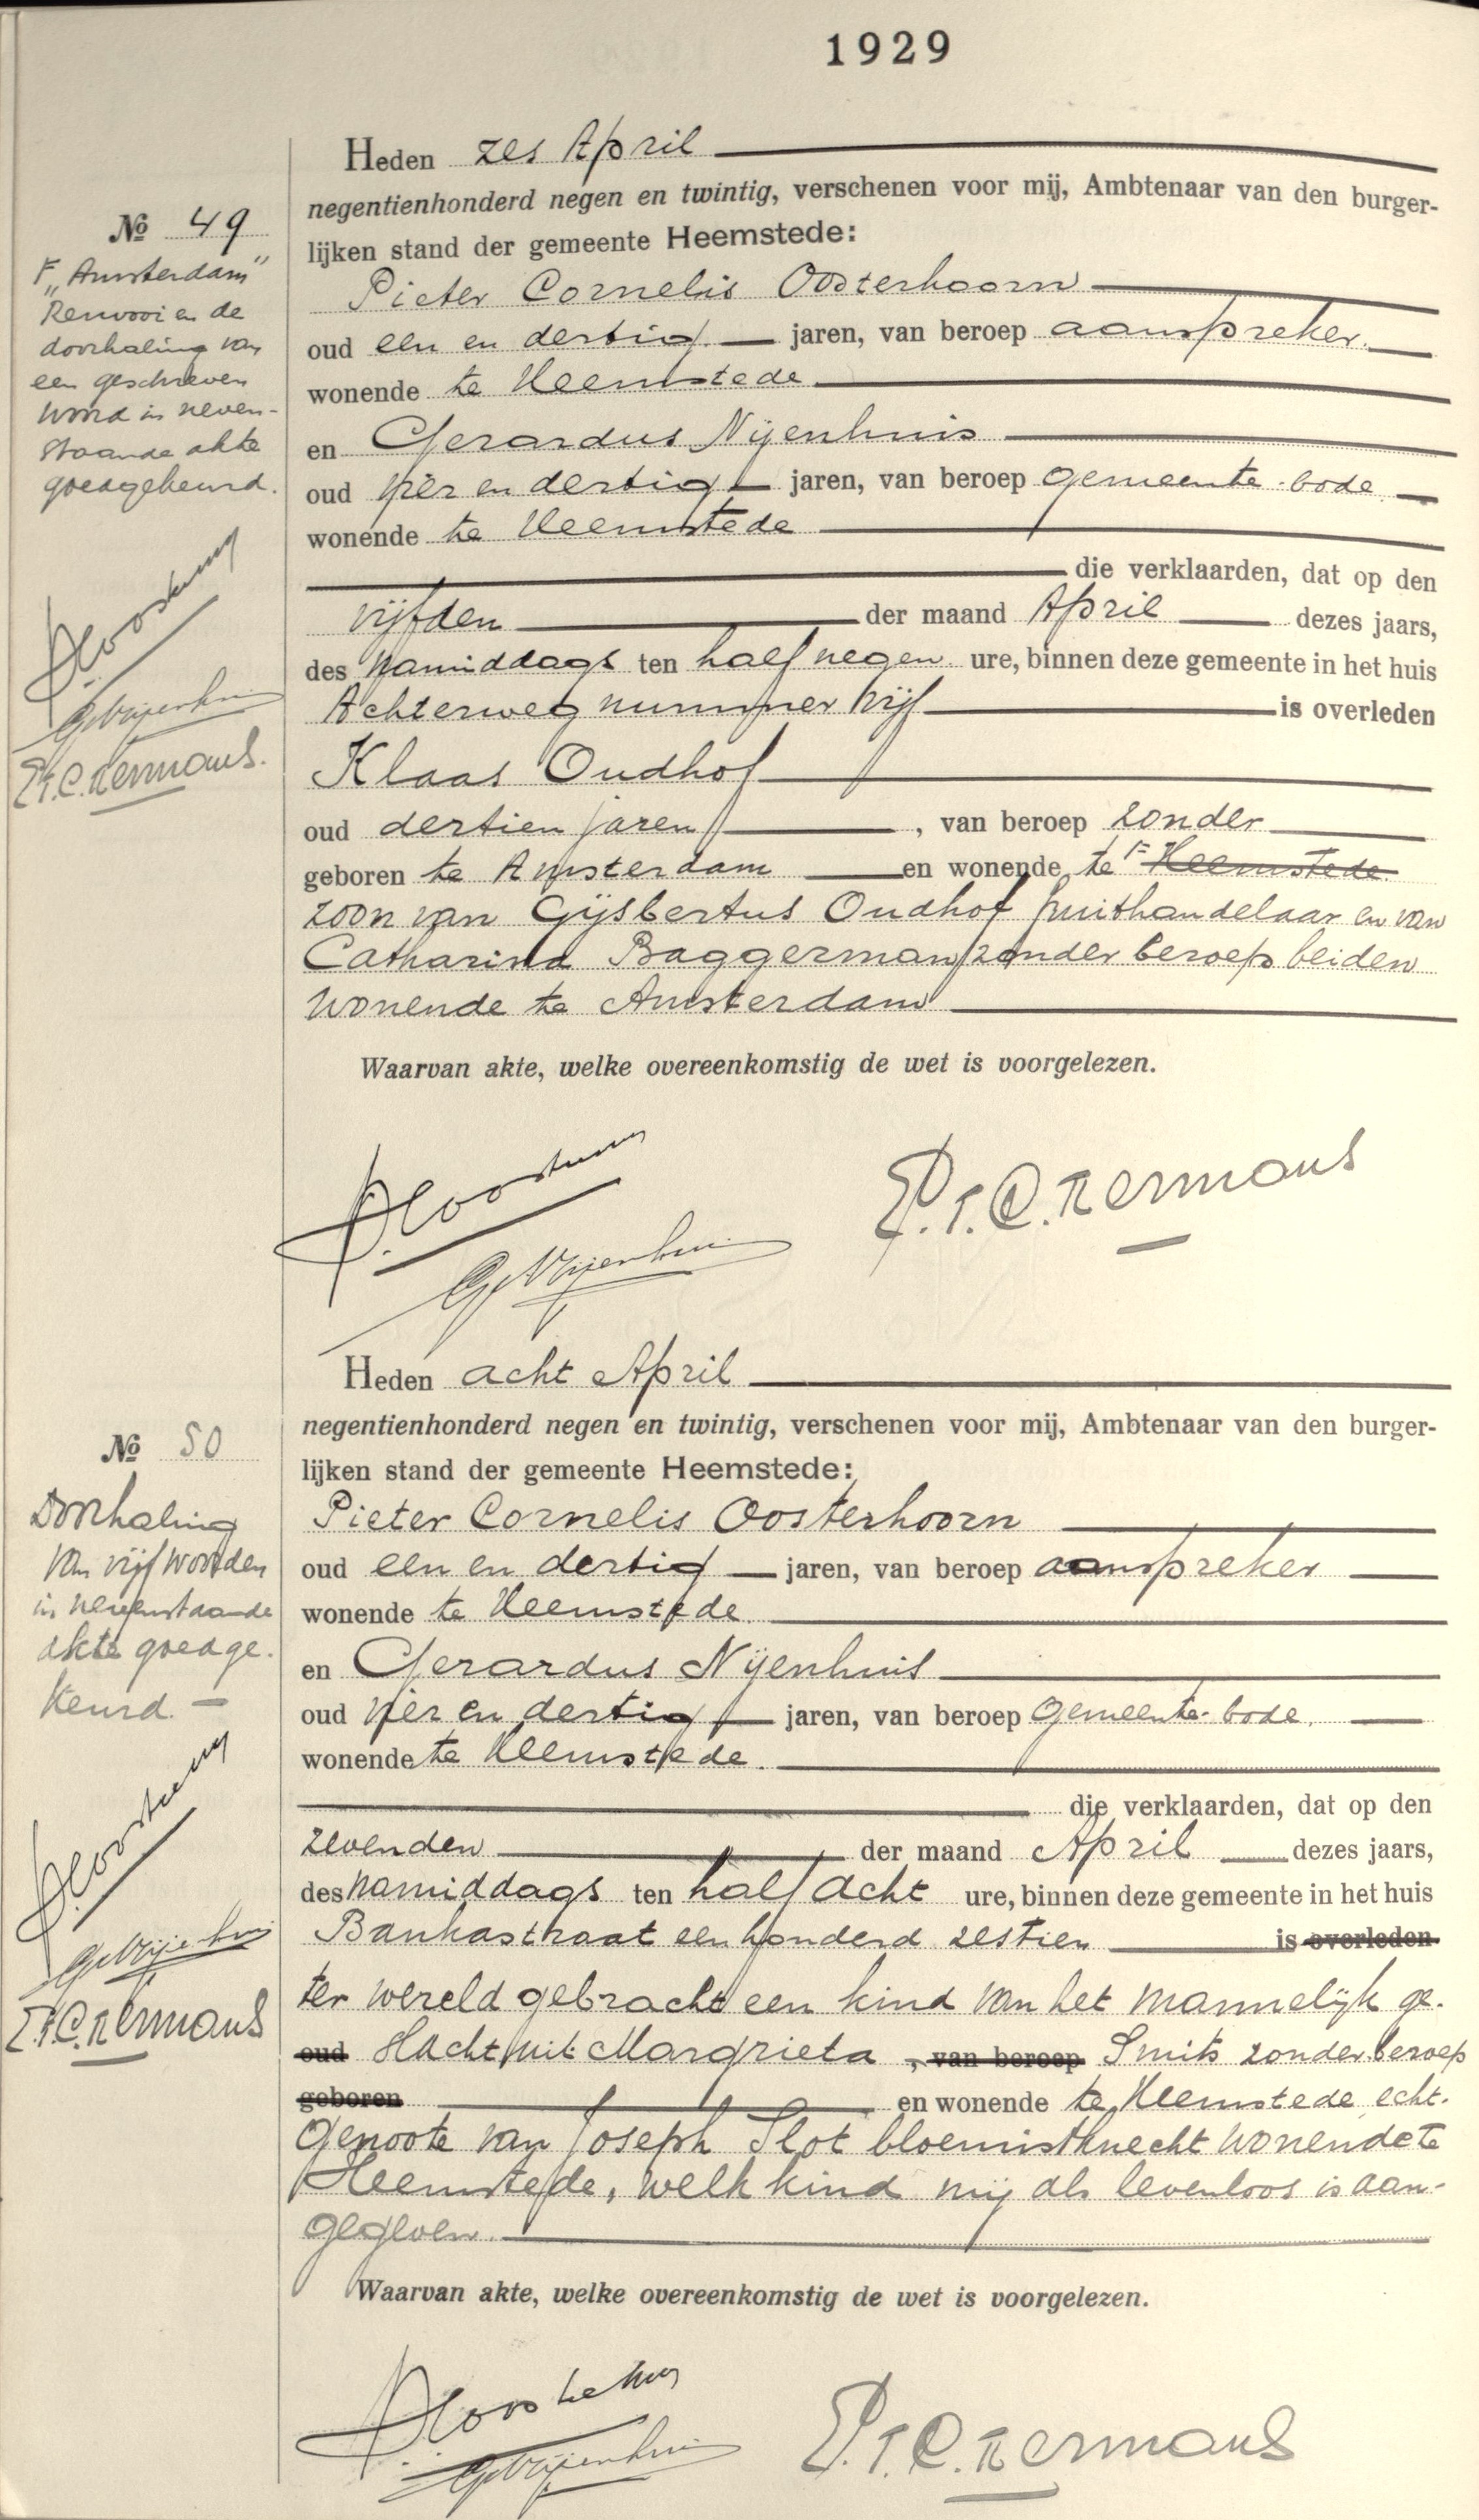 1929
Heden zes April
negentienhonderd negen en twintig, verschenen voor mij, Ambtenaar van den burger-
lijken stand der gemeente Heemstede:
Pieter Cornelis Oosterhoorn
oud een en dertig jaren, van beroep aanspreker
wonende te Heemstede
en Gerardus Nijenhuis
oud vier en dertig jaren, van beroep gemeente-bode
wonende te Heemstede
die verklaarden, dat op den
vijfden der maand April dezes jaars,
des namiddags ten half negen ure, binnen deze gemeente in het huis
Achterweg nummer vijf is overleden
Klaas Oudhof
oud dertien jaren, van beroep zonder
geboren te Amsterdam en wonende te F Heemstede
zoon van Gijsbertus Oudhof fruithandelaar en van
Catharina Baggerman zonder beroep beiden
wonende te Amsterdam
Waarvan akte, welke overeenkomstig de wet is voorgelezen.
№ 49
F „Amsterdam"
Renvooi en de
doorhaling van
een geschreven
woord in neven-
staande akte
goedgekeurd.
GNijenhuis
Heden acht April
negentienhonderd negen en twintig, verschenen voor mij, Ambtenaar van den burger-
lijken stand der gemeente Heemstede:
Pieter Cornelis Oosterhoorn
oud een en dertig jaren, van beroep aanspreker
wonende te Heemstede
en Gerardus Nijenhuis
oud vier en dertig jaren, van beroep gemeente-bode.
wonende te Heemstede.
die verklaarden, dat op den
zevenden der maand April dezes jaars,
des namiddags ten half acht ure, binnen deze gemeente in het huis
Bankastraat een honderd zestien is overleden
ter wereld gebracht een kind van het mannelijk ge-
oud slacht uit Margrieta , van beroep Smits zonder beroep
geboren en wonende te Heemstede echt-
genoote van Joseph Slot bloemistknecht wonende te
Heemstede, welk kind mij als levenloos is aan-
gegeven.
Waarvan akte, welke overeenkomstig de wet is voorgelezen.
№ 50
Doorhaling
van vijf woorden
in nevenstaande
akte goedge-
keurd.
GNijenhuis